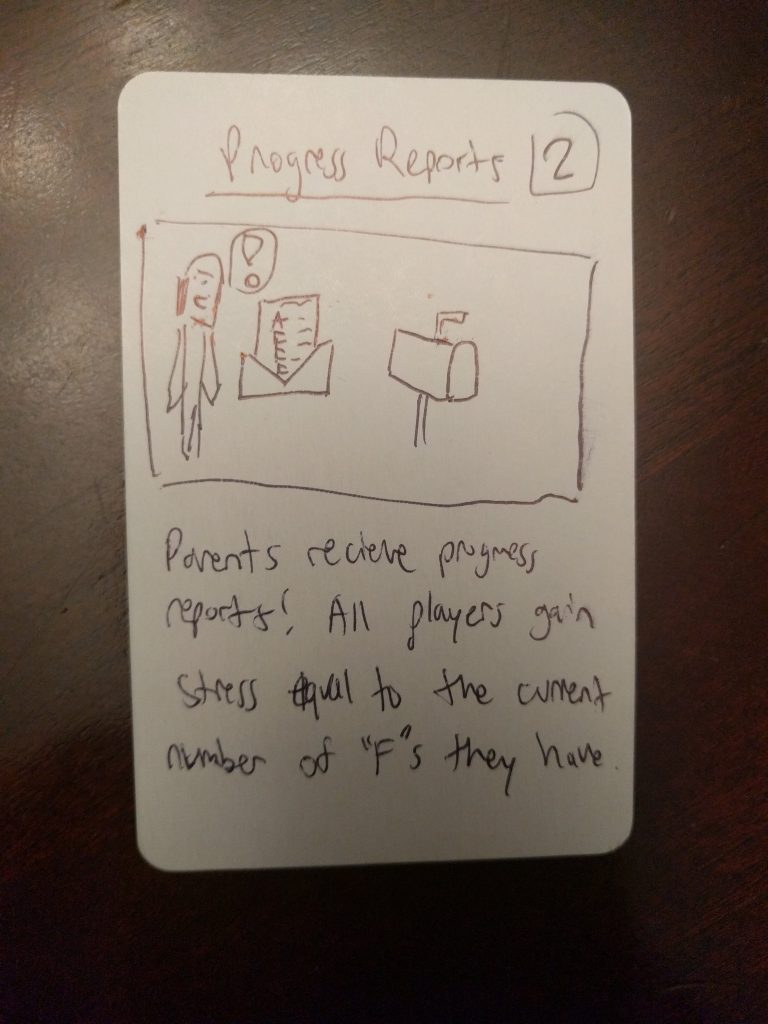 Progress Reports 2
!
A
Parents recieve progress
reports! All players gain
stress equal to the current
number of "F"s they have.